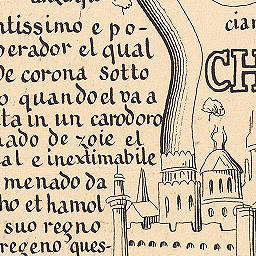 ntissimo e po-
perador el qual
De corona sotto
o quando el va a
ta in un carodoro
nado de zoie el
al e inextimabile
menado da
ho et hamol
suo regno
regeno ques-
cian
CH